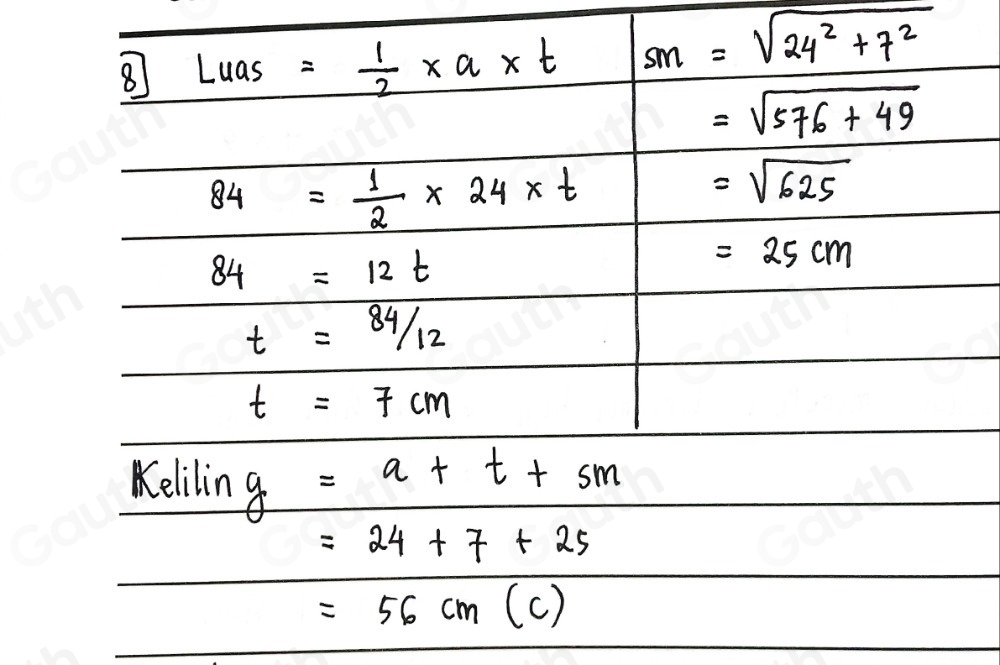 8] Luas = 1/2 × a × t
84 = 1/2 × 24 × t
84 = 12 t
t = 84/12
t = 7 cm
sm = √(24² + 7²)
= √(576 + 49)
= √625
= 25 cm
Keliling = a + t + sm
= 24 + 7 + 25
= 56 cm (C)
Gauth